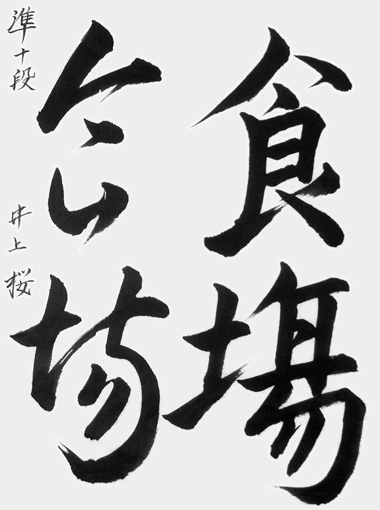 食場
食場
準十段 井上 桜